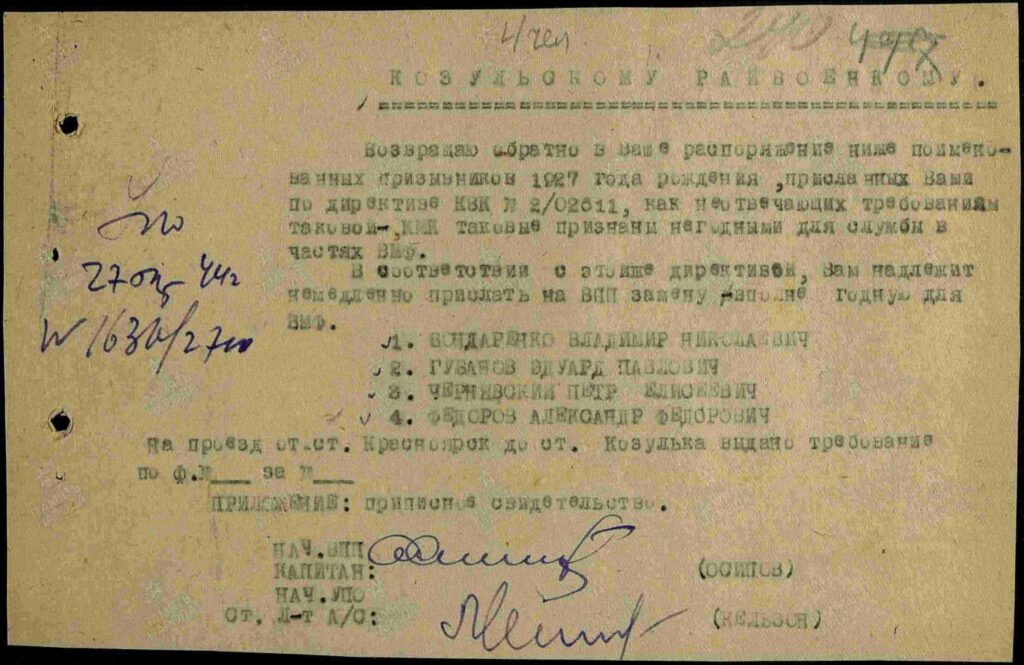 4 чел
КОЗУЛЬСКОМУ РАЙВОЕНКОМУ.
Возвращаю обратно в Ваше распоряжение ниже поимено-
ванных призывников 1927 года рождения ,присланных Вами
по директиве КВК № 2/02611, как неотвечающих требованиям
таковой-, таковые признаны негодными для службы в
частях ВМФ.
В соответствии с этойже директивей, Вам надлежит
немедленно прислать на ВПП замену вполне годную для
ВМФ.
1. БОНДАРЕНКО ВЛАДИМИР НИКОЛАЕВИЧ
2. ГУБАНОВ ЭДУАРД ПАВЛОВИЧ
3. ЧЕРНЯВСКИЙ ПЕТР ЕЛИСЕЕВИЧ
4. ФЕДОРОВ АЛЕКСАНДР ФЕДОРОВИЧ
На проезд от.ст. Красноярск до ст. Козулька выдано требование
по ф.№___ за №___
ПРИЛОЖЕНИЕ: приписное свидетельство.
НАЧ.ВПП
КАПИТАН: (ОСИПОВ)
НАЧ.УПО
Ст. Л-т А/С: (НЕЛЬЗОН)
27 44г